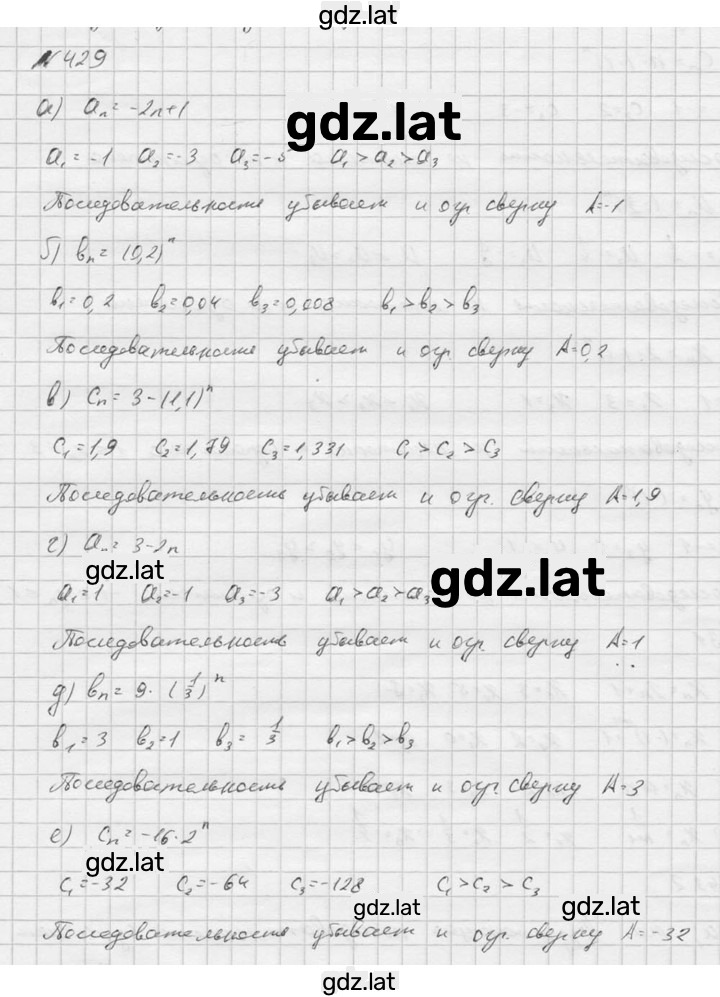 gdz.lat
№429
а) aₙ = -2n+1
gdz.lat
a₁ = -1 a₂ = -3 a₃ = -5 a₁ > a₂ > a₃
Последовательность убывает и огр. сверху A=-1
б) bₙ = (0,2)ⁿ
b₁ = 0,2 b₂ = 0,04 b₃ = 0,008 b₁ > b₂ > b₃
Последовательность убывает и огр. сверху A=0,2
в) cₙ = 3-(1,1)ⁿ
c₁ = 1,9 c₂ = 1,79 c₃ = 1,331 c₁ > c₂ > c₃
Последовательность убывает и огр. сверху A=1,9
г) aₙ = 3-2n
gdz.lat gdz.lat
a₁ = 1 a₂ = -1 a₃ = -3 a₁ > a₂ > a₃
Последовательность убывает и огр. сверху A=1
д) bₙ = 9·(1/3)ⁿ
b₁ = 3 b₂ = 1 b₃ = 1/3 b₁ > b₂ > b₃
Последовательность убывает и огр. сверху A=3
е) cₙ = -16·2ⁿ
gdz.lat
c₁ = -32 c₂ = -64 c₃ = -128 c₁ > c₂ > c₃
gdz.lat gdz.lat
Последовательность убывает и огр. сверху A=-32
gdz.lat